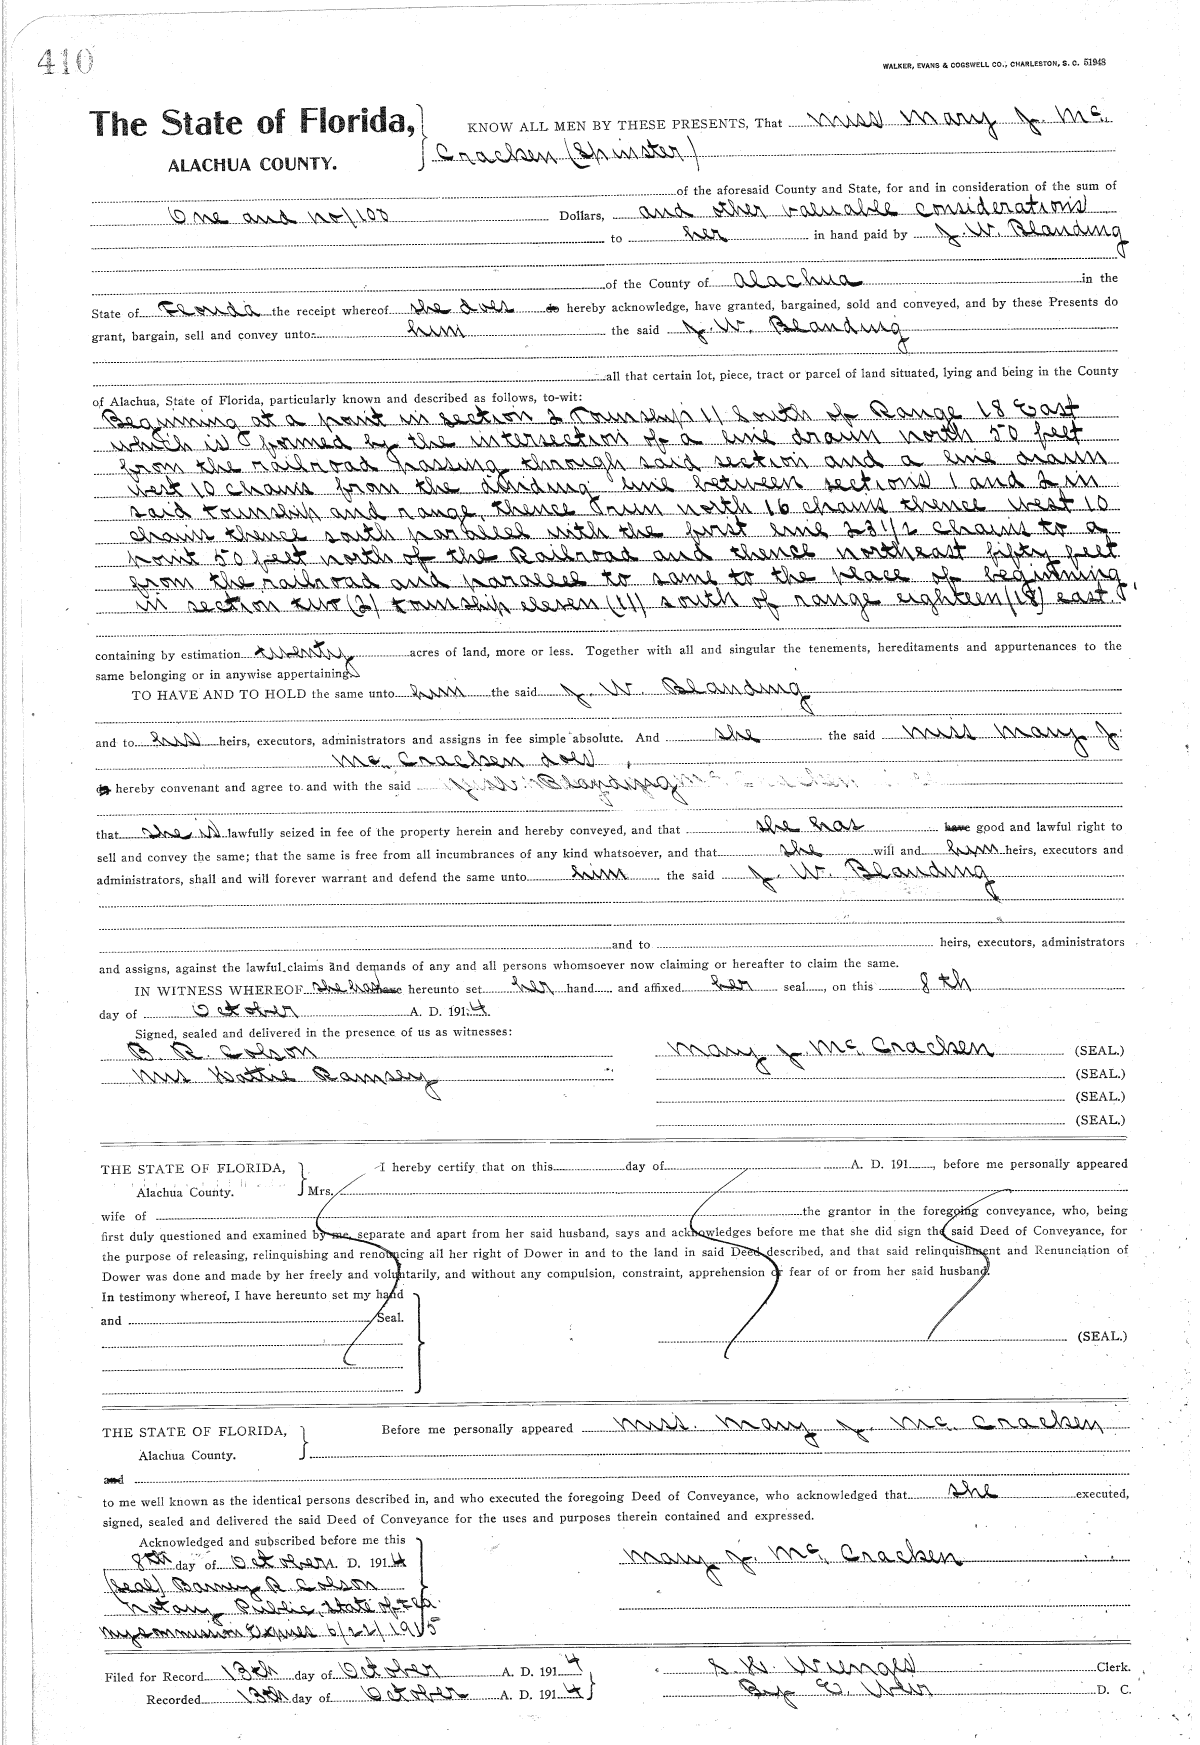 410
WALKER, EVANS & COGSWELL CO., CHARLESTON, S. C. 51948
The State of Florida, KNOW ALL MEN BY THESE PRESENTS, That Miss Mary J. Mc.
ALACHUA COUNTY. Cracken (Spinster)
of the aforesaid County and State, for and in consideration of the sum of
One and no/100 Dollars, and other valuable considerations
to her in hand paid by J. W. Blanding
of the County of Alachua in the
State of Florida the receipt whereof she does do hereby acknowledge, have granted, bargained, sold and conveyed, and by these Presents do
grant, bargain, sell and convey unto him the said J. W. Blanding
all that certain lot, piece, tract or parcel of land situated, lying and being in the County
of Alachua, State of Florida, particularly known and described as follows, to-wit:
Beginning at a point in section 2 Township 11 South of Range 18 East
which is formed by the intersection of a line drawn north 50 feet
from the railroad passing through said section and a line drawn
west 10 chains from the dividing line between sections 1 and 2 in
said township and range, thence run north 16 chains thence west 10
chains thence south parallel with the first line 23 1/2 chains to a
point 50 feet north of the Railroad and thence northeast fifty feet
from the railroad and parallel to same to the place of beginning,
in section two (2) township eleven (11) south of range eighteen (18) east.
containing by estimation twenty acres of land, more or less. Together with all and singular the tenements, hereditaments and appurtenances to the
same belonging or in anywise appertaining.
TO HAVE AND TO HOLD the same unto him the said J. W. Blanding
and to his heirs, executors, administrators and assigns in fee simple absolute. And she the said Miss Mary J.
Mc. Cracken does,
do hereby convenant and agree to and with the said J. W. Blanding
that she is lawfully seized in fee of the property herein and hereby conveyed, and that she has have good and lawful right to
sell and convey the same; that the same is free from all incumbrances of any kind whatsoever, and that she will and him heirs, executors and
administrators, shall and will forever warrant and defend the same unto him the said J. W. Blanding
and to heirs, executors, administrators
and assigns, against the lawful claims and demands of any and all persons whomsoever now claiming or hereafter to claim the same.
IN WITNESS WHEREOF she has have hereunto set her hand and affixed her seal, on this 8th
day of October A. D. 1914.
Signed, sealed and delivered in the presence of us as witnesses:
B. R. Colson Mary J. Mc. Cracken (SEAL.)
Mrs Hattie Ramsey (SEAL.)
(SEAL.)
(SEAL.)
THE STATE OF FLORIDA, I hereby certify that on this day of A. D. 191, before me personally appeared
Alachua County. Mrs.
wife of the grantor in the foregoing conveyance, who, being
first duly questioned and examined by me, separate and apart from her said husband, says and acknowledges before me that she did sign the said Deed of Conveyance, for
the purpose of releasing, relinquishing and renouncing all her right of Dower in and to the land in said Deed described, and that said relinquishment and Renunciation of
Dower was done and made by her freely and voluntarily, and without any compulsion, constraint, apprehension or fear of or from her said husband.
In testimony whereof, I have hereunto set my hand
and Seal.
(SEAL.)
THE STATE OF FLORIDA, Before me personally appeared Miss. Mary J. Mc. Cracken
Alachua County.
and
to me well known as the identical persons described in, and who executed the foregoing Deed of Conveyance, who acknowledged that she executed,
signed, sealed and delivered the said Deed of Conveyance for the uses and purposes therein contained and expressed.
Acknowledged and subscribed before me this
8th day of October A. D. 1914 Mary J. Mc. Cracken
(Seal) Barney R Colson
Notary Public, State of Fla.
My commission Expires 6/22/1915
Filed for Record 13th day of October A. D. 1914 Clerk.
Recorded 13th day of October A. D. 1914 By D. C.